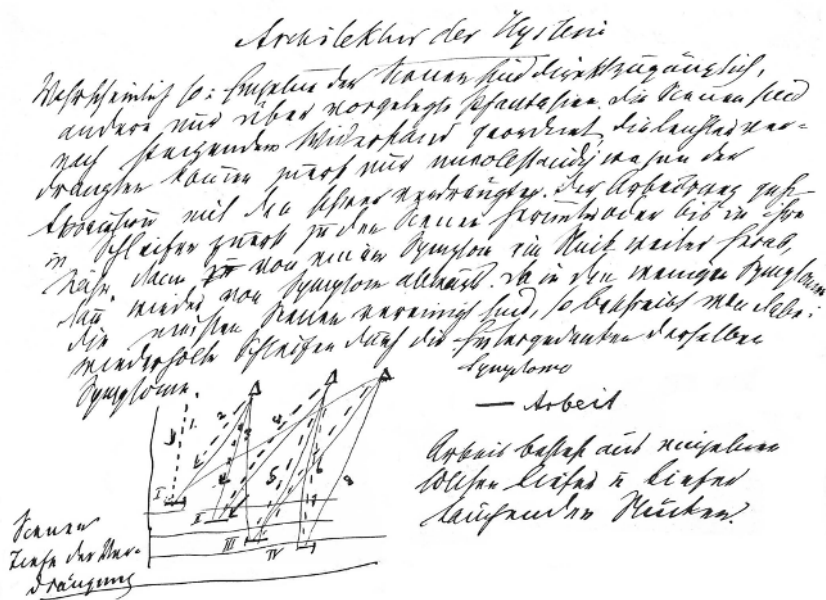 Architektur der Hysterie
Wahrscheinlich so: Einzelne der Scenen sind direkt zugänglich,
andere nur über vorgelegte Phantasien. Die Scenen sind
nach steigendem Widerstand geordnet, die leichter ver-
drängten kommen zuerst nur unvollständig wegen der
Association mit den schwer verdrängten. Der Arbeitsweg geht
in Schleifen zuerst zu den Scenen herunter oder bis in ihre
Nähe, dann von einem Symptom ein Stück weiter herab,
dann wieder von Symptom abwärts. Da in den wenigen Symptomen
die meisten Scenen vereinigt sind, so beschreibt man dabei
wiederholte Schleifen durch die Hintergedanken derselben
Symptome.
Symptome
— Arbeit
Arbeit besteht aus einzelnen
solchen tiefer u tiefer
tauchenden Stücken.
1 2 3 4 5 6 7 8
I II III IV
Scenen
Tiefe der Ver-
drängung